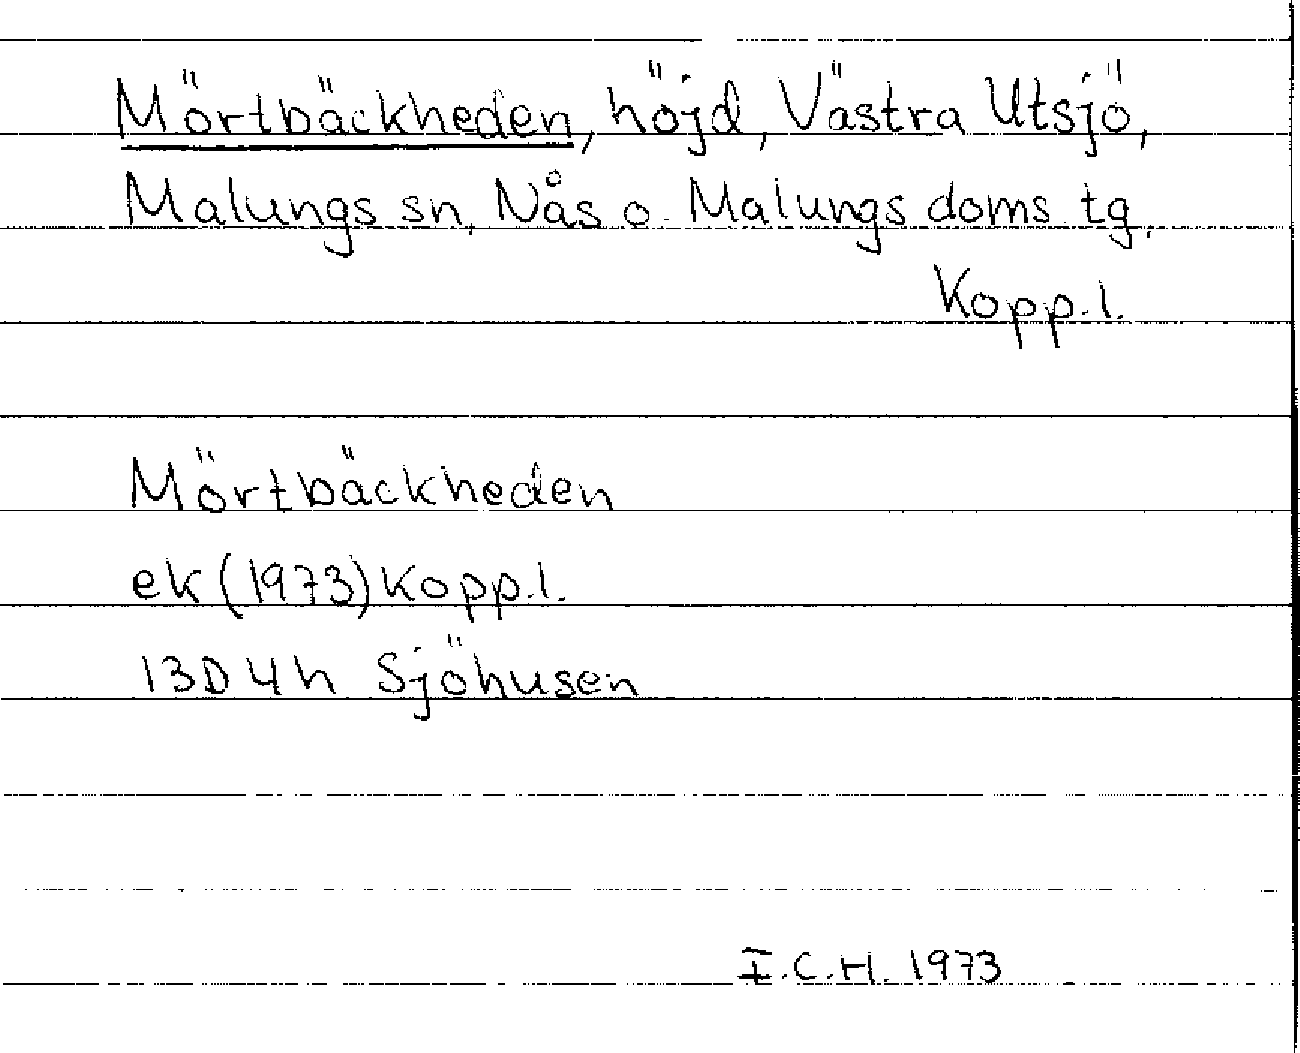 Mörtbäckheden, höjd, Västra Utsjö,
Malungs sn, Nås o. Malungs doms. tg,
Kopp.l.
Mörtbäckheden
ek (1973) Kopp.l.
13D 4h Sjöhusen
I.C.H. 1973